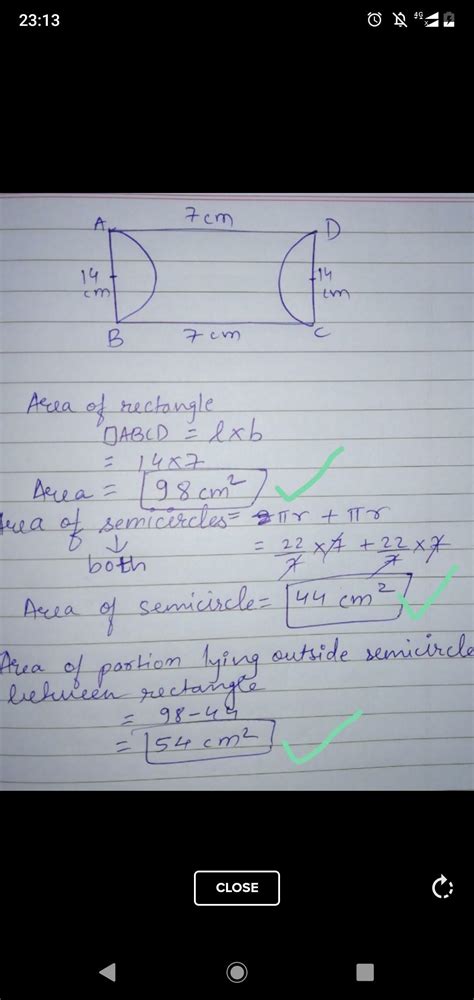 23:13
4G
7 cm
A D
14 14
cm cm
B C
7 cm
Area of rectangle
□ABCD = l×b
= 14×7
Area = 98 cm²
Area of semicircles = πr + πr
both = 22/7 ×7 + 22/7 ×7
Area of semicircle = 44 cm²
Area of portion lying outside semicircle
between rectangle
= 98-44
= 54 cm²
CLOSE